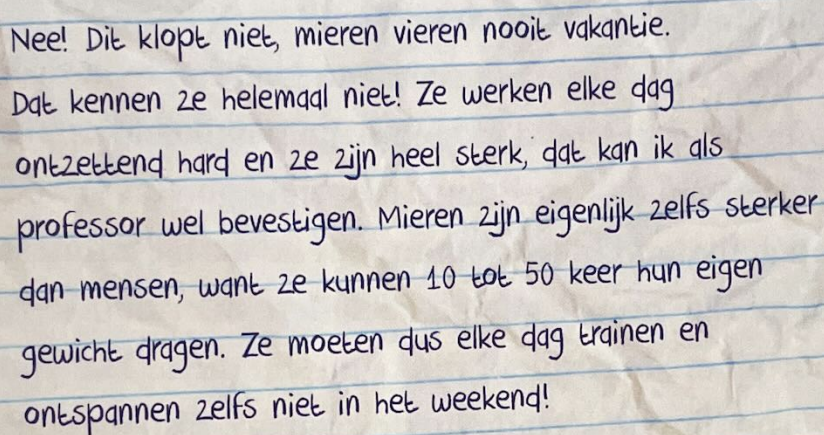 Nee! Dit klopt niet, mieren vieren nooit vakantie.
Dat kennen ze helemaal niet! Ze werken elke dag
ontzettend hard en ze zijn heel sterk, dat kan ik als
professor wel bevestigen. Mieren zijn eigenlijk zelfs sterker
dan mensen, want ze kunnen 10 tot 50 keer hun eigen
gewicht dragen. Ze moeten dus elke dag trainen en
ontspannen zelfs niet in het weekend!